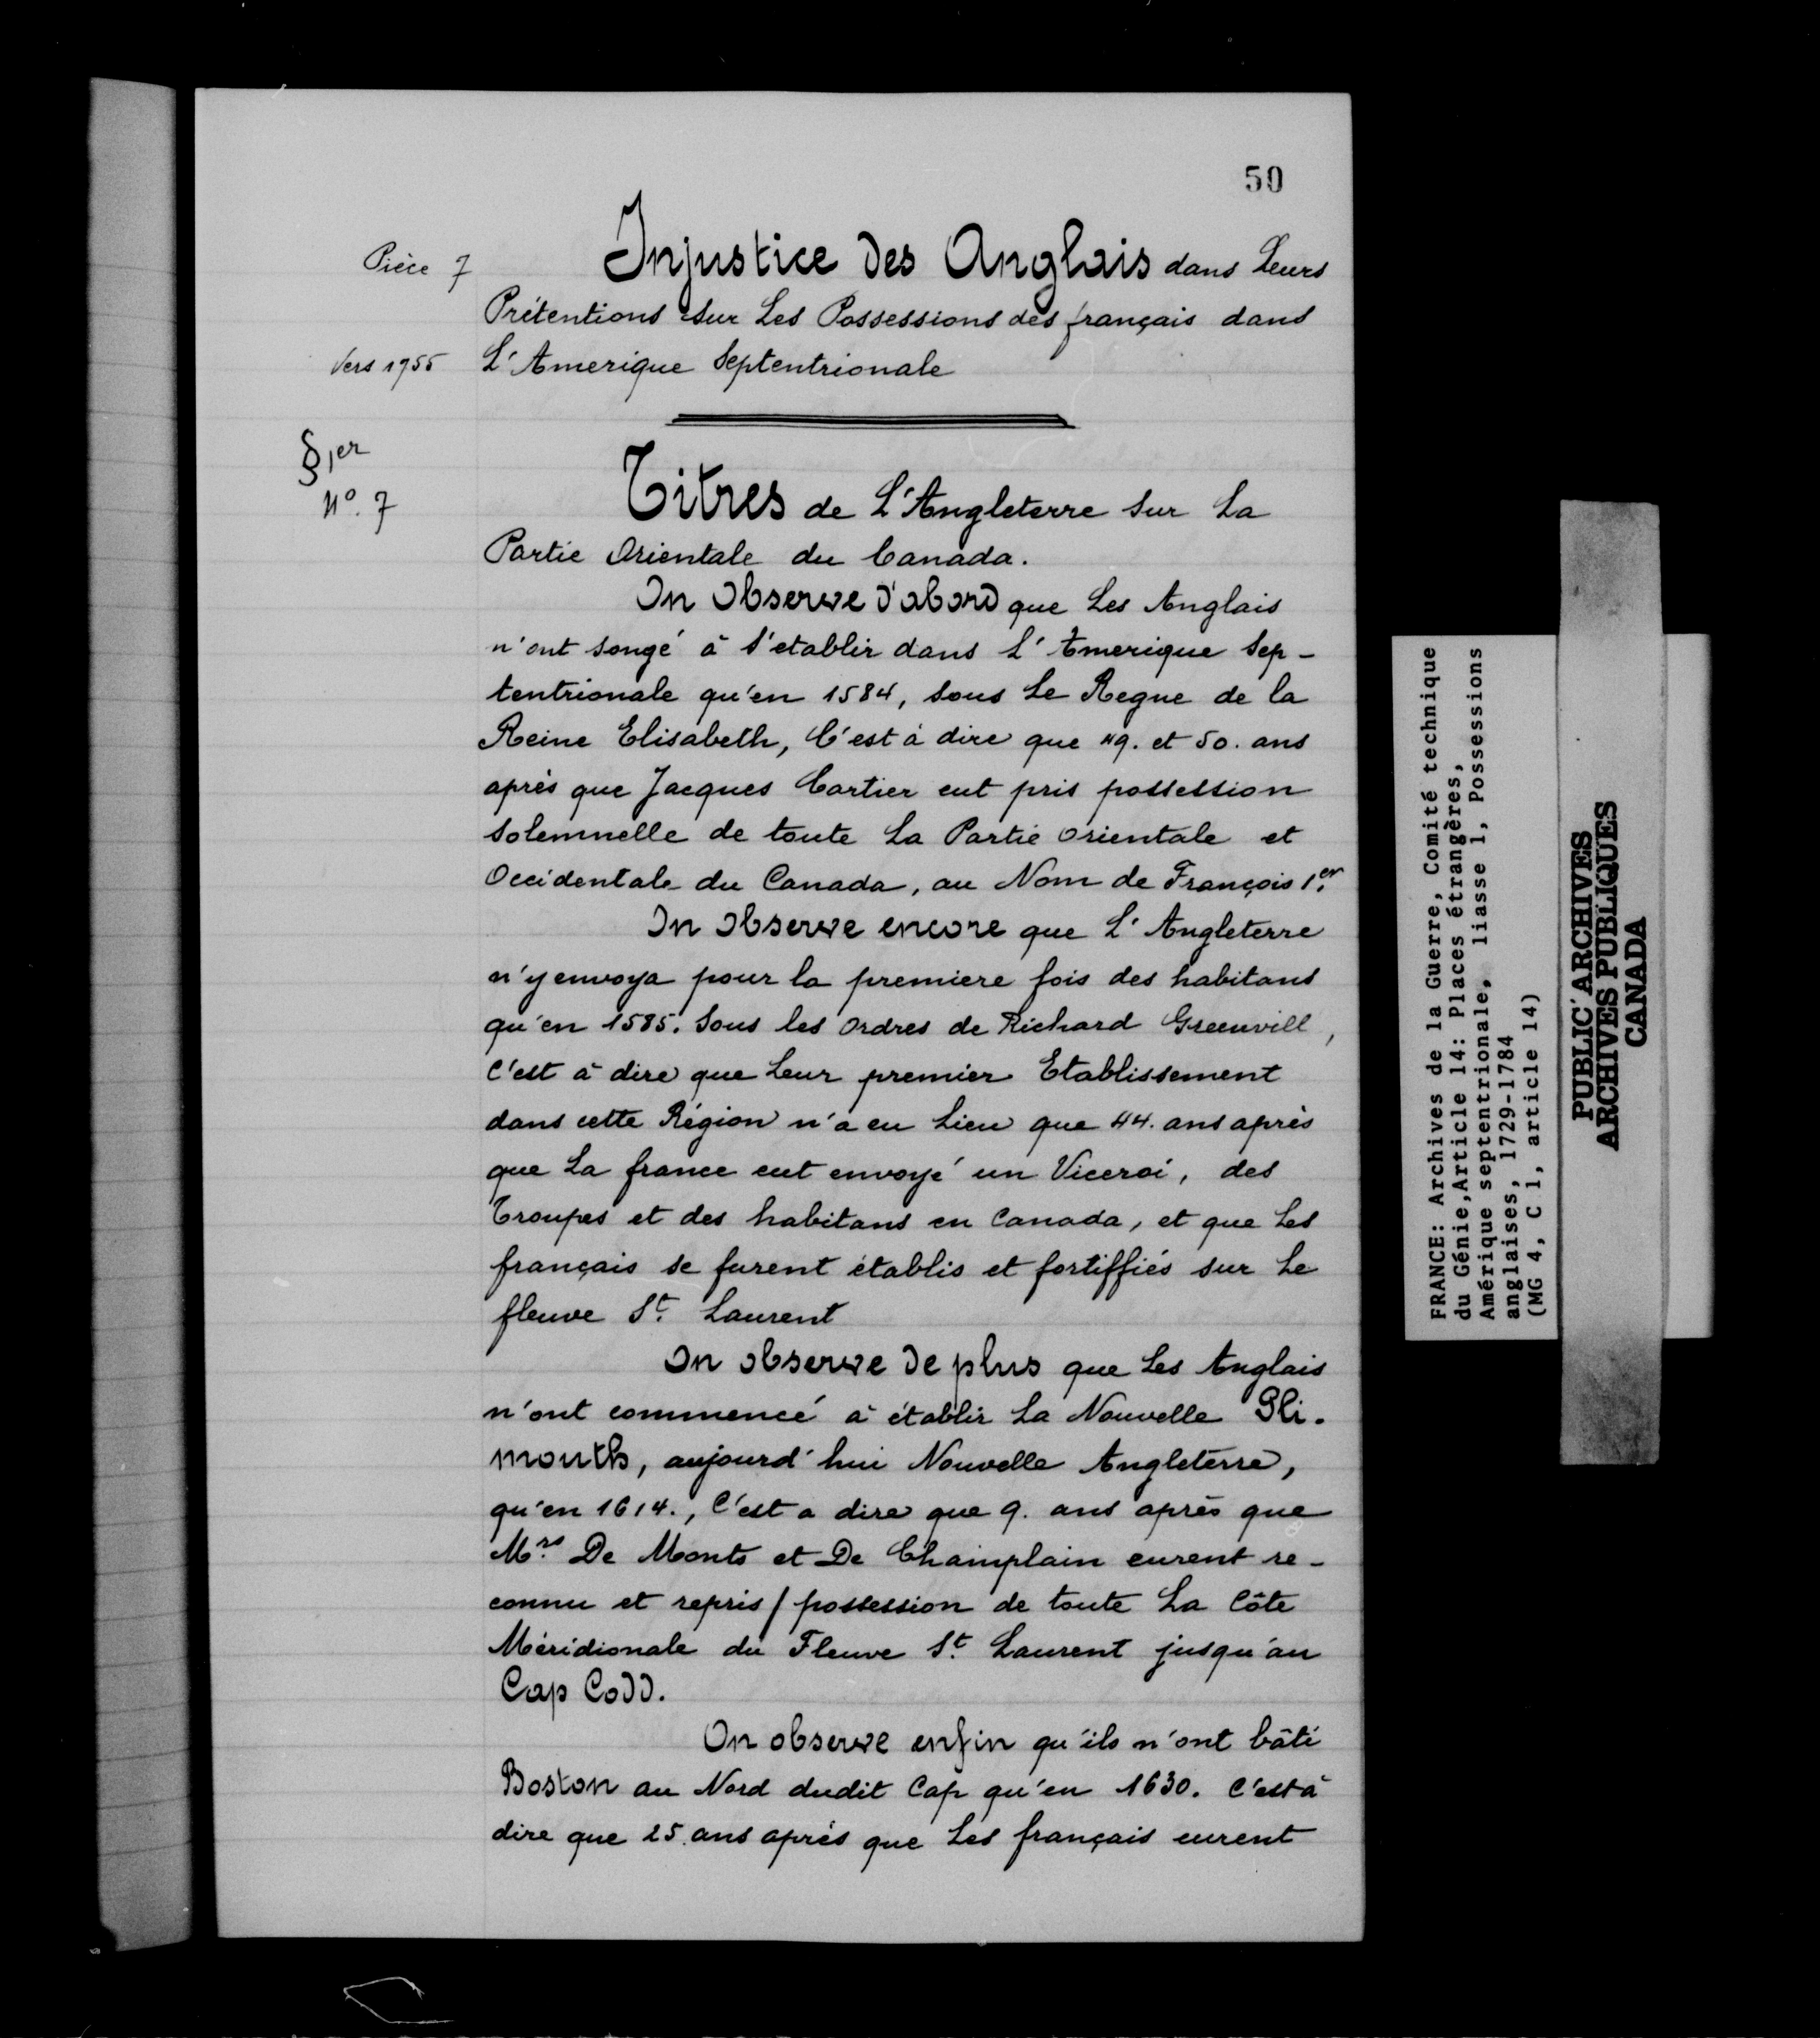 50
Pièce 7
Injustice des Anglais dans Leurs
Prétentions sur Les Possessions des français dans
Vers 1755
L'Amerique Septentrionale
§ 1er
No. 7
Titres de L'Angleterre sur La
Partie Orientale du Canada.
On Observe d'abord que Les Anglais
n'ont songé à s'etablir dans L'Amerique Sep-
tentrionale qu'en 1584, sous Le Regne de la
Reine Elisabeth, C'est à dire que 49. et 50. ans
après que Jacques Cartier eut pris possession
solemnelle de toute La Partie orientale et
Occidentale du Canada, au Nom de François 1er.
On observe encore que L'Angleterre
n'y envoya pour la premiere fois des habitans
qu'en 1585. Sous les ordres de Richard Greenvill,
C'est à dire que Leur premier Etablissement
dans cette Région n'a eu Lieu que 44. ans après
que La france eut envoyé un Viceroi, des
Troupes et des habitans en Canada, et que Les
français se furent établis et fortiffiés sur Le
fleuve St. Laurent
On observe de plus que Les Anglais
n'ont commencé à établir La Nouvelle Pli-
mouth, aujourd'hui Nouvelle Angleterre,
qu'en 1614., C'est a dire que 9. ans après que
Mrs. De Monts et De Champlain eurent re-
connu et repris / possession de toute La Côte
Méridionale du Fleuve St. Laurent jusqu'au
Cap Codd.
On observe enfin qu'ils n'ont bâti
Boston au Nord dudit Cap qu'en 1630. C'est à
dire que 25. ans après que Les français eurent
FRANCE: Archives de la Guerre, Comité technique
du Génie,Article 14: Places étrangères,
Amérique septentrionale, liasse 1, Possessions
anglaises, 1729-1784
(MG 4, C 1, article 14)
PUBLIC ARCHIVES
ARCHIVES PUBLIQUES
CANADA